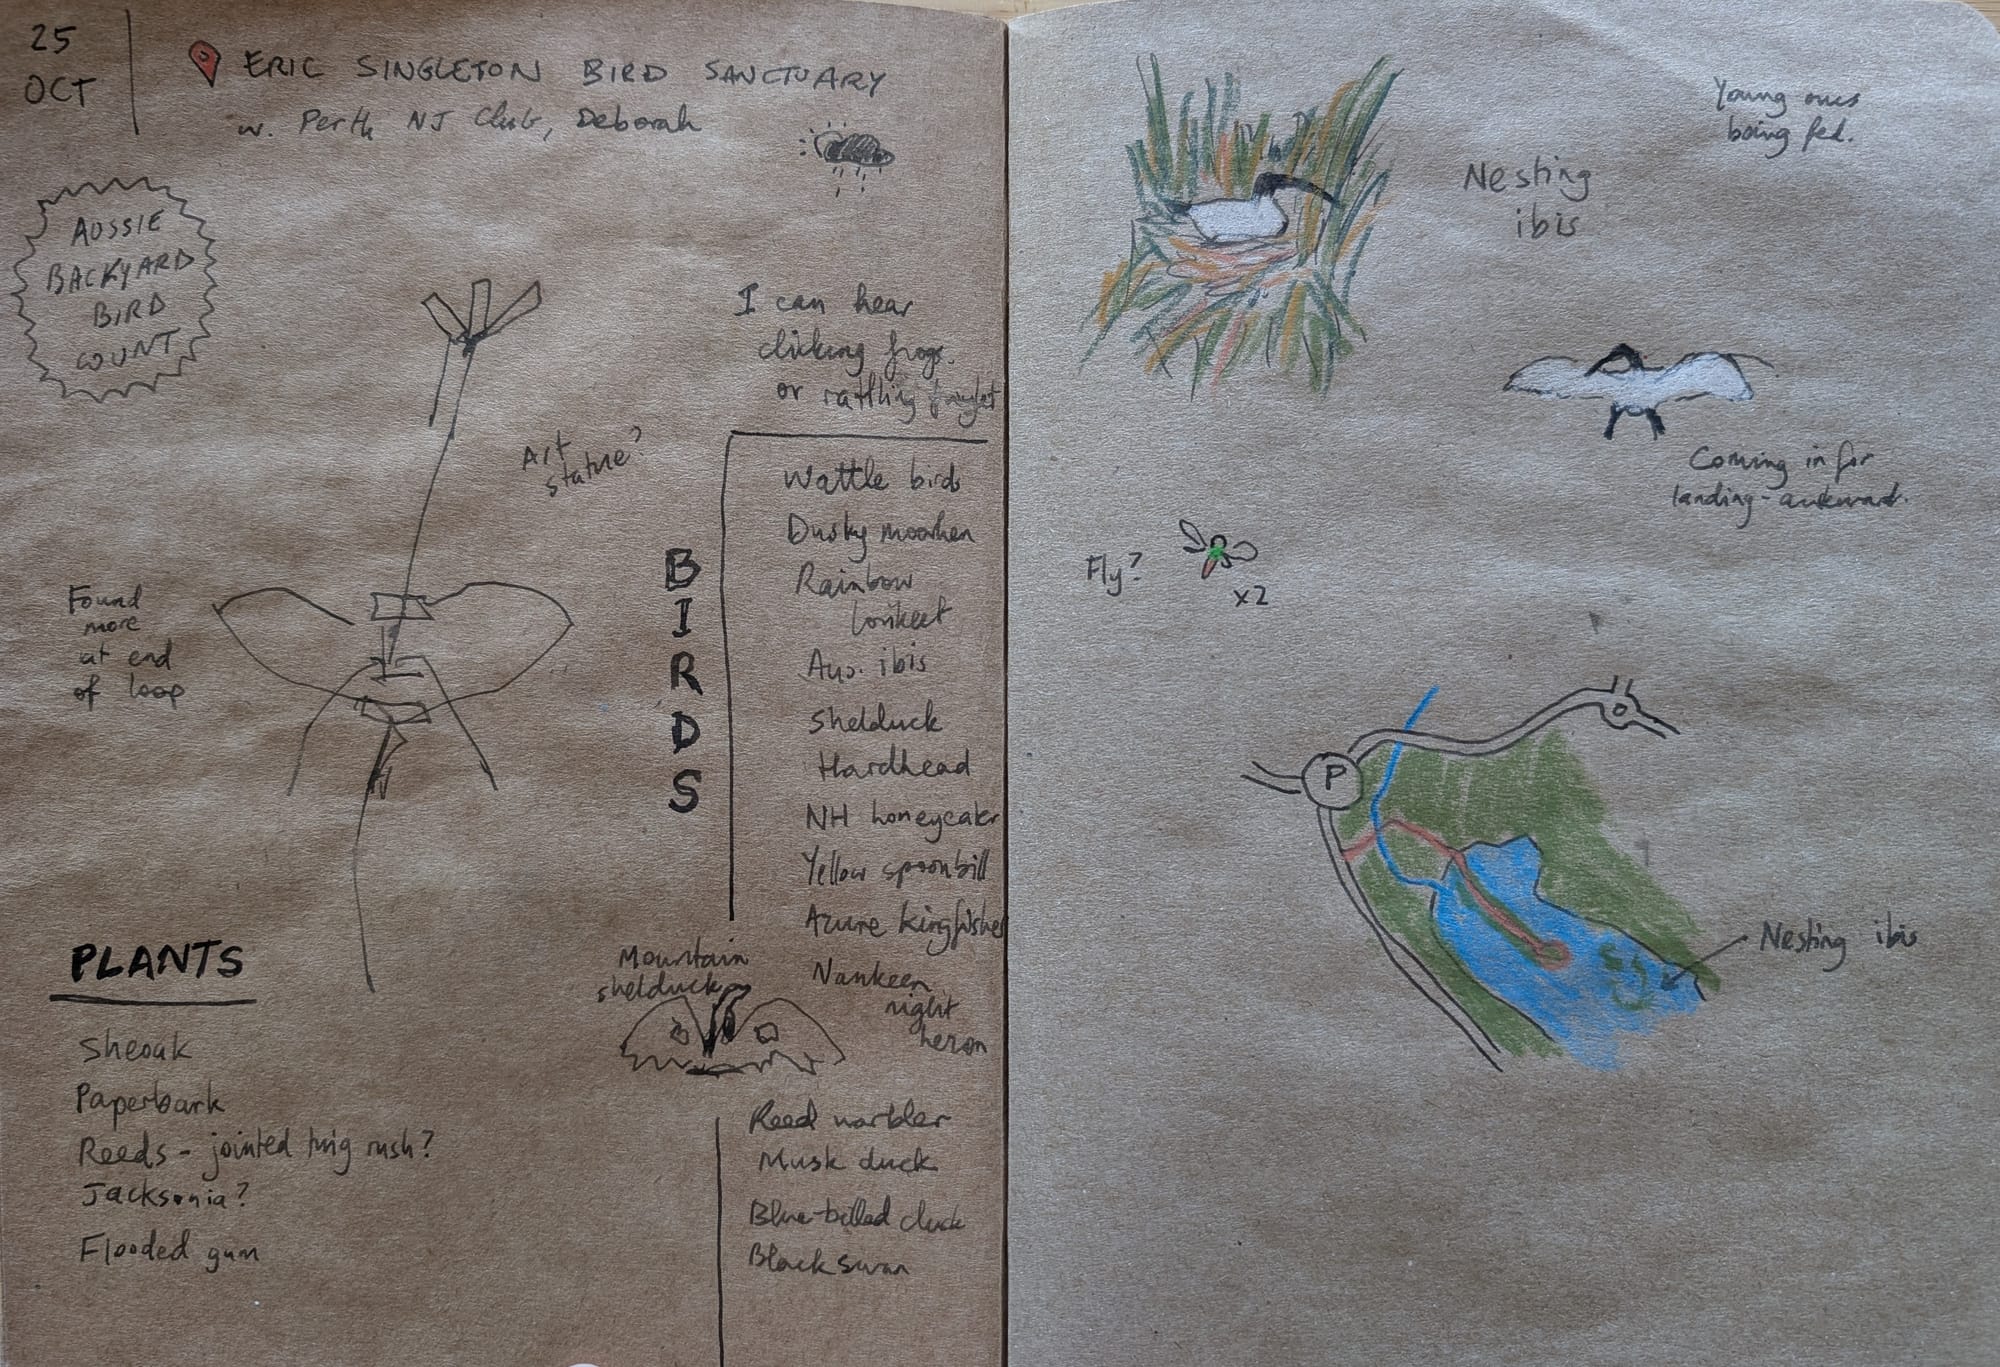 25
OCT
ERIC SINGLETON BIRD SANCTUARY
w. Perth NJ Club, Deborah
AUSSIE
BACKYARD
BIRD
COUNT
I can hear
clicking frogs.
or rattling froglet
Art
statue?
Found
more
at end
of loop
BIRDS
Wattle birds
Dusky moorhen
Rainbow
lorikeet
Aus. ibis
Shelduck
Hardhead
NH honeyeater
Yellow spoonbill
Azure kingfisher
Nankeen
night
heron
Mountain
shelduck
Reed warbler
Musk duck
Blue-billed duck
Black swan
PLANTS
Sheoak
Paperbark
Reeds - jointed twig rush?
Jacksonia?
Flooded gum
Young ones
being fed.
Nesting
ibis
Coming in for
landing - awkward.
Fly?
x2
P
Nesting ibis